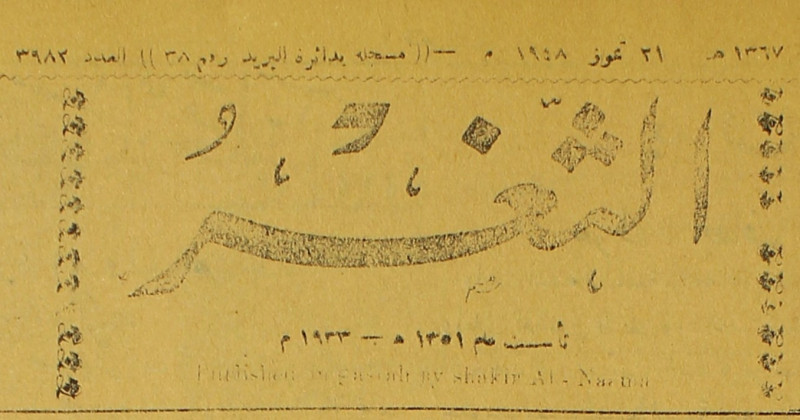 ١٣٦٧ هـ ٢١ تموز ١٩٤٨ م —(( مسجلة بدائرة البريد رقم ٣٨ )) العدد ٣٩٨٢
الثغر
تأسست عام ١٣٥١ هـ — ١٩٣٣ م
Published in Basrah by shakir Al - Naema